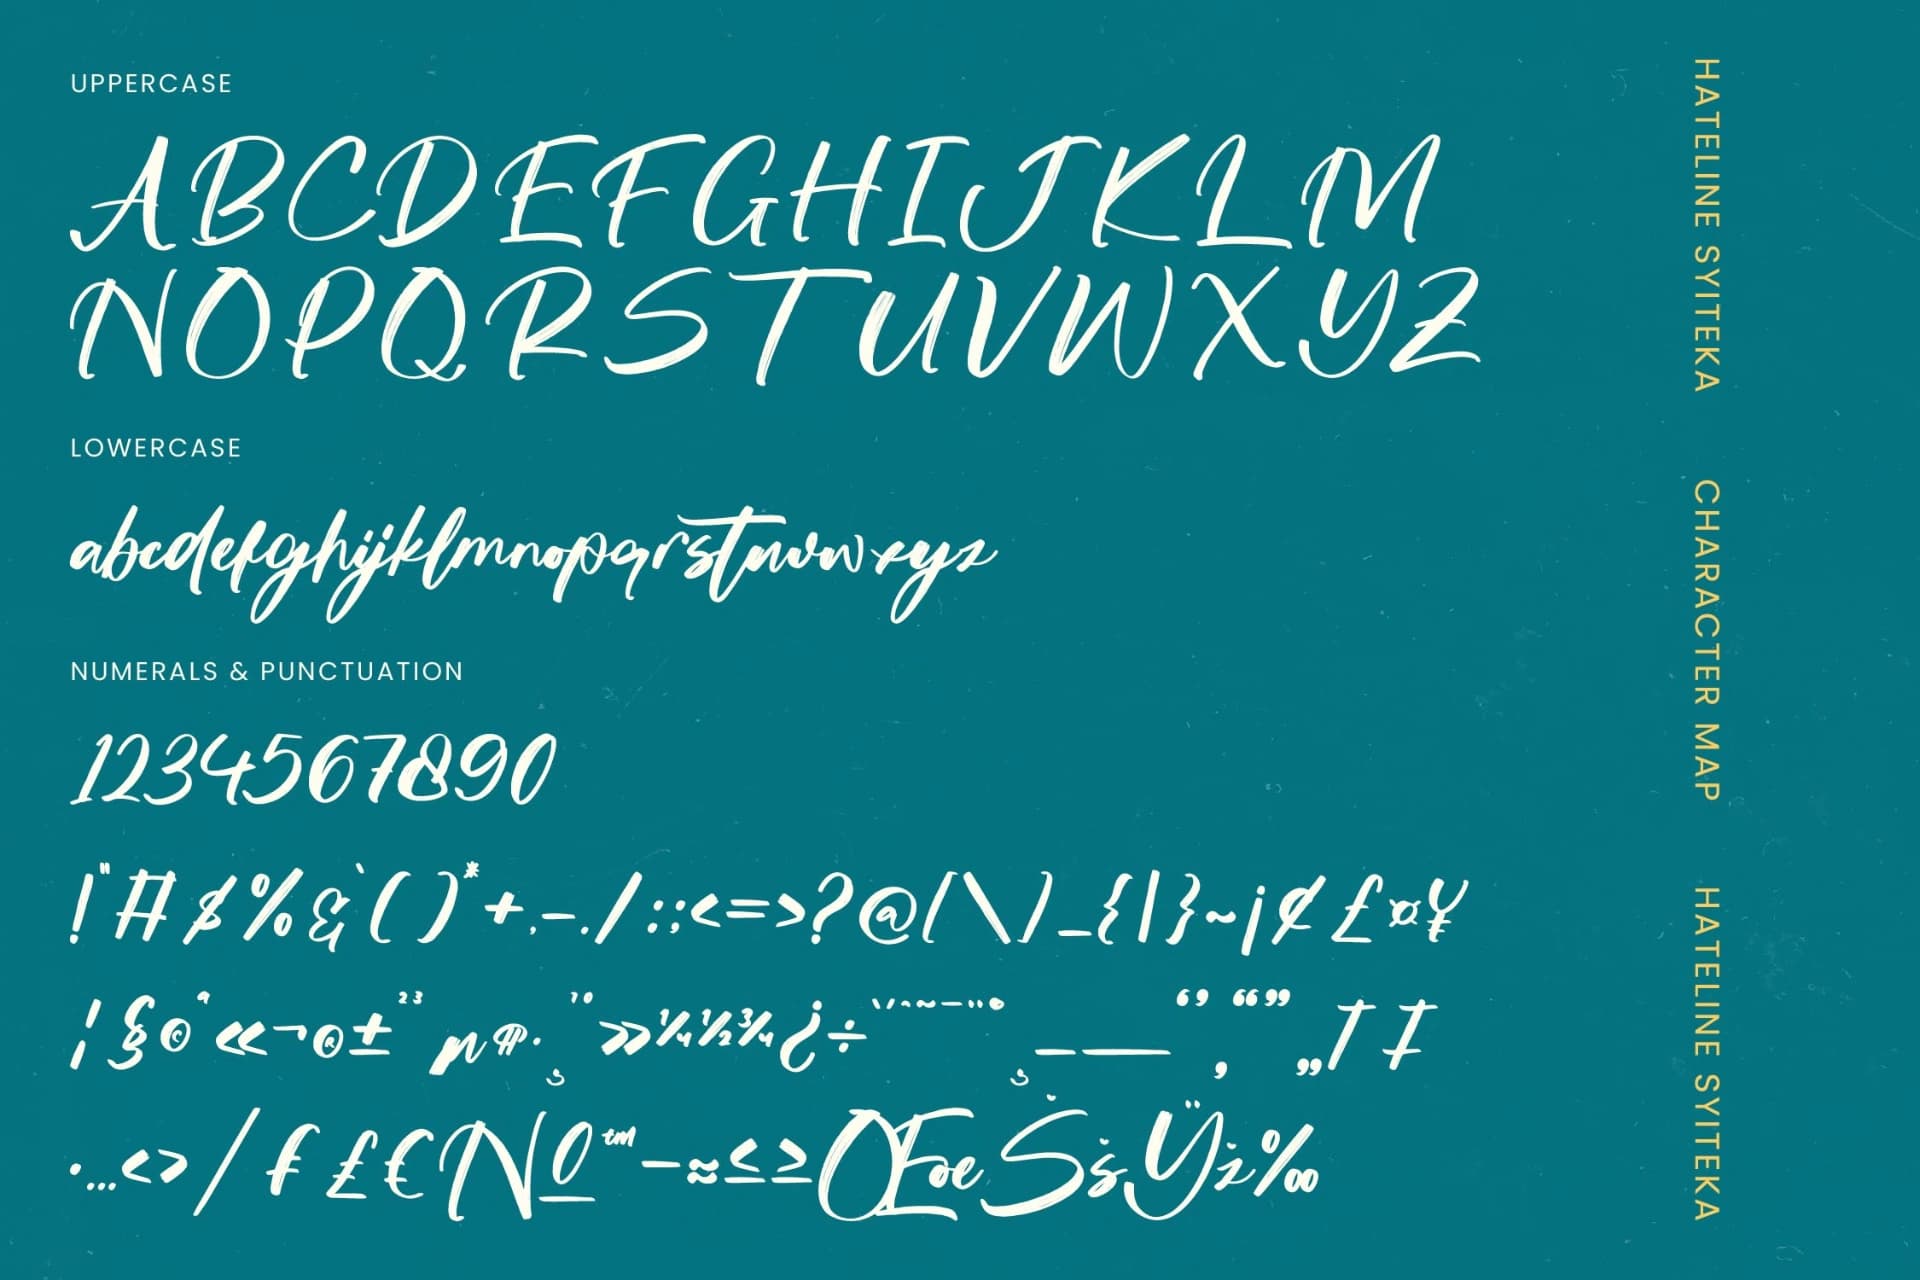 UPPERCASE
ABCDEFGHIJKLM
NOPQRSTUVWXYZ
LOWERCASE
abcdefghijklmnopqrstuvwxyz
NUMERALS & PUNCTUATION
1234567890
!"#$%&'()*+,-./:;<=>?@[\]_{|}~¡¢£¤¥
¦§©ª«¬®±²³µ¶·¸¹º»¼½¾¿÷`´ˆ˜¯¨˚¸–—‘’‚“”„†‡
•…‹›⁄ƒ₤€№™−≈≤≥ŒœŠšŸž‰
HATELINE SYITEKA
CHARACTER MAP
HATELINE SYITEKA